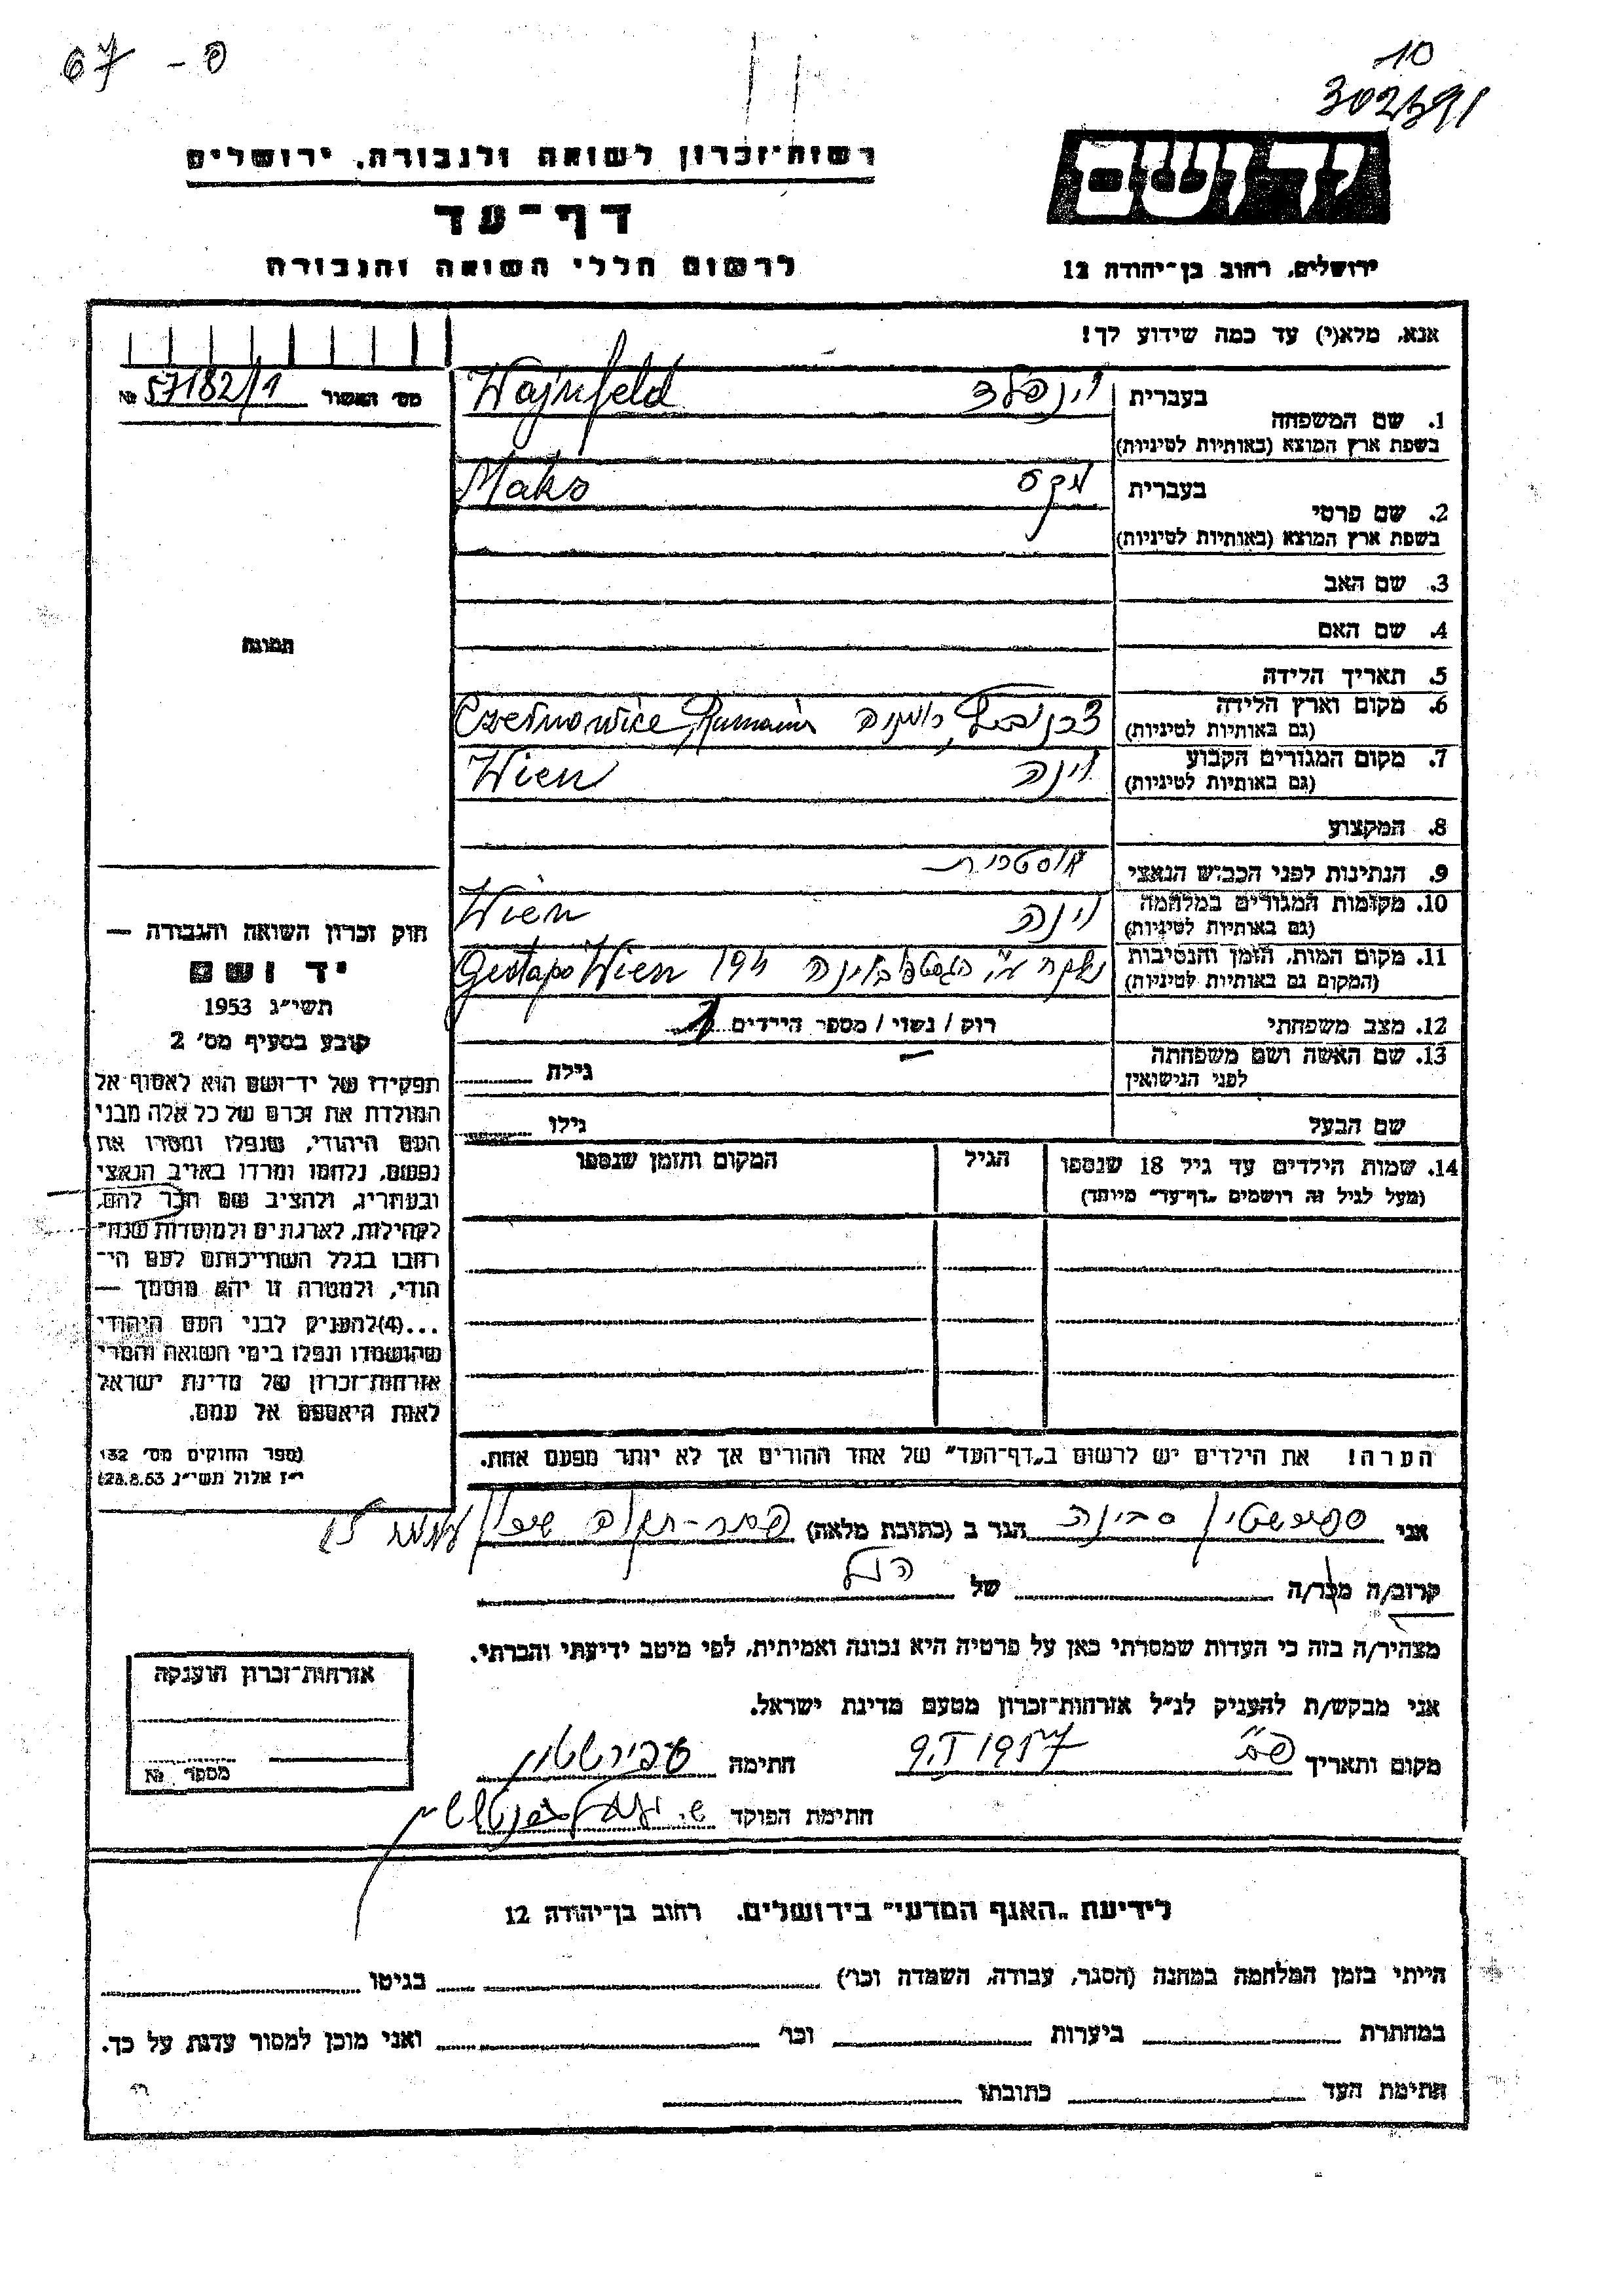 67 - פ
10
302/391
רשות־זכרון לשואה ולגבורה, ירושלים
יד ושם
דף־עד
לרשום חללי השואה והגבורה
ירושלים, רחוב בן־יהודה 12
אנא, מלא(י) עד כמה שידוע לך!
מס׳ האשור 57182/1 №
1. שם המשפחה בעברית וינפלד Wajnfeld
בשפת ארץ המוצא (באותיות לטיניות)
2. שם פרטי בעברית מקס Maks
בשפת ארץ המוצא (באותיות לטיניות)
3. שם האב
4. שם האם
תמונה
5. תאריך הלידה
6. מקום וארץ הלידה רומניה Czernowice, Rumania
(גם באותיות לטיניות)
7. מקום המגורים הקבוע וינה Wien
(גם באותיות לטיניות)
8. המקצוע
9. הנתינות לפני הכבוש הנאצי אוסטרית
10. מקומות המגורים במלחמה וינה Wien
(גם באותיות לטיניות)
11. מקום המות, הזמן והנסיבות הגסטפו בוינה 194 Gestapo Wien
(המקום גם באותיות לטיניות)
12. מצב משפחתי רוק / נשוי / מספר הילדים 1
13. שם האשה ושם משפחתה גילה
לפני הנישואין
שם הבעל גילו
14. שמות הילדים עד גיל 18 שנספו הגיל המקום והזמן שנספו
(מעל לגיל זה רושמים "דף־עד" מיוחד)
חוק זכרון השואה והגבורה —
יד ושם
תשי״ג 1953
קובע בסעיף מס׳ 2
תפקידו של יד־ושם הוא לאסוף אל
המולדת את זכרם של כל אלה מבני
העם היהודי, שנפלו ומסרו את
נפשם, נלחמו ומרדו באויב הנאצי
ובעוזריו, ולהציב שם וזכר להם,
לקהילות, לארגונים ולמוסדות שנח־
רבו בגלל השתייכותם לעם הי־
הודי, ולמטרה זו יהא מוסמך —
...(4) להעניק לבני העם היהודי
שהושמדו ונפלו בימי השואה והמרי
אזרחות־זכרון של מדינת ישראל
לאות היאספם אל עמם.
(ספר החוקים מס׳ 132
י״ז אלול תשי״ג 28.8.53)
הערה! את הילדים יש לרשום ב"דף־העד" של אחד ההורים אך לא יותר מפעם אחת.
אני ספירשטין סבינה הגר ב (כתובת מלאה)
קרוב/ה מכר/ה של הנ"ל
מצהיר/ה בזה כי העדות שמסרתי כאן על פרטיה היא נכונה ואמיתית, לפי מיטב ידיעתי והכרתי.
אני מבקש/ת להעניק לנ״ל אזרחות־זכרון מטעם מדינת ישראל.
מקום ותאריך 9.I 1957 חתימה
חתימת הפוקד
אזרחות־זכרון הוענקה
מספר №
לידיעת "האגף המדעי" בירושלים, רחוב בן־יהודה 12
הייתי בזמן המלחמה במחנה (הסגר, עבודה, השמדה וכו׳) בגיטו
במחתרת ביערות וכו׳ ואני מוכן למסור עדות על כך.
חתימת העד כתובתו